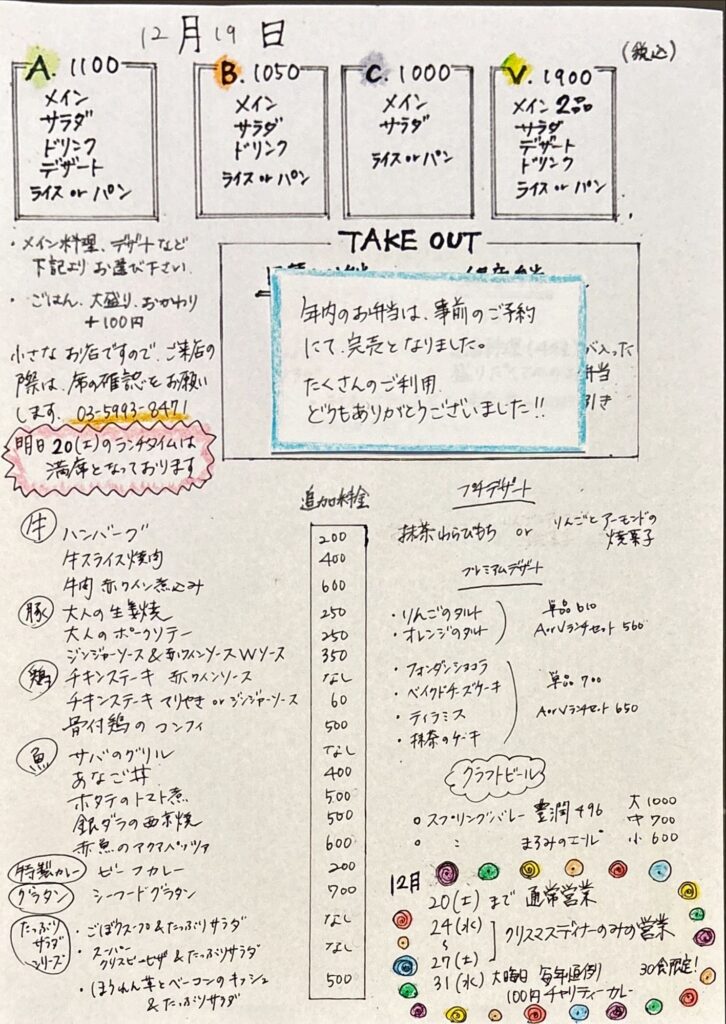 12月19日
(税込)
A. 1100
メイン
サラダ
ドリンク
デザート
ライス or パン
B. 1050
メイン
サラダ
ドリンク
ライス or パン
C. 1000
メイン
サラダ
ライス or パン
V. 1900
メイン 2品
サラダ
デザート
ドリンク
ライス or パン
・メイン料理、デザートなど
下記よりお選び下さい
・ごはん、大盛り、おかわり
+100円
小さなお店ですので、ご来店の
際は、席の確認をお願い
します。 03-5993-8471
明日20(土)のランチタイムは
満席となっております
TAKE OUT
年内のお弁当は、事前のご予約
にて、完売となりました。
たくさんのご利用、
どうもありがとうございました!!
が入った
弁当
引き
追加料金
牛 ハンバーグ 200
牛スライス焼肉 400
牛肉 赤ワイン煮込み 600
豚 大人の生姜焼 250
大人のポークソテー 250
ジンジャーソース&赤ワインソース Wソース 350
鶏 チキンステーキ 赤ワインソース なし
チキンステーキ てりやき or ジンジャーソース 60
骨付鶏のコンフィ 500
魚 サバのグリル なし
あなご丼 400
ホタテのトマト煮 500
銀ダラの西京焼 500
赤魚のアクアパッツァ 600
特製カレー ビーフカレー 200
グラタン シーフードグラタン 700
たっぷり
サラダ
シリーズ
・ごぼうスープ&たっぷりサラダ なし
・スーパー
クリスピーピザ&たっぷりサラダ なし
・ほうれん草とベーコンのキッシュ 500
&たっぷりサラダ
プチデザート
抹茶わらびもち or りんごとアーモンドの
焼菓子
プレミアムデザート
・りんごのタルト
・オレンジのタルト
単品 610
A or Vランチセット 560
・フォンダンショコラ
・ベイクドチーズケーキ
・ティラミス
・抹茶のケーキ
単品 700
A or Vランチセット 650
クラフトビール
○ スプリングバレー 豊潤 496
○ 〃 まろみのエール
大 1000
中 700
小 600
12月
20(土)まで 通常営業
24(水)
〜
27(土)
クリスマスディナーのみの営業
31(水) 大晦日 毎年恒例 30食限定!
100円チャリティーカレー